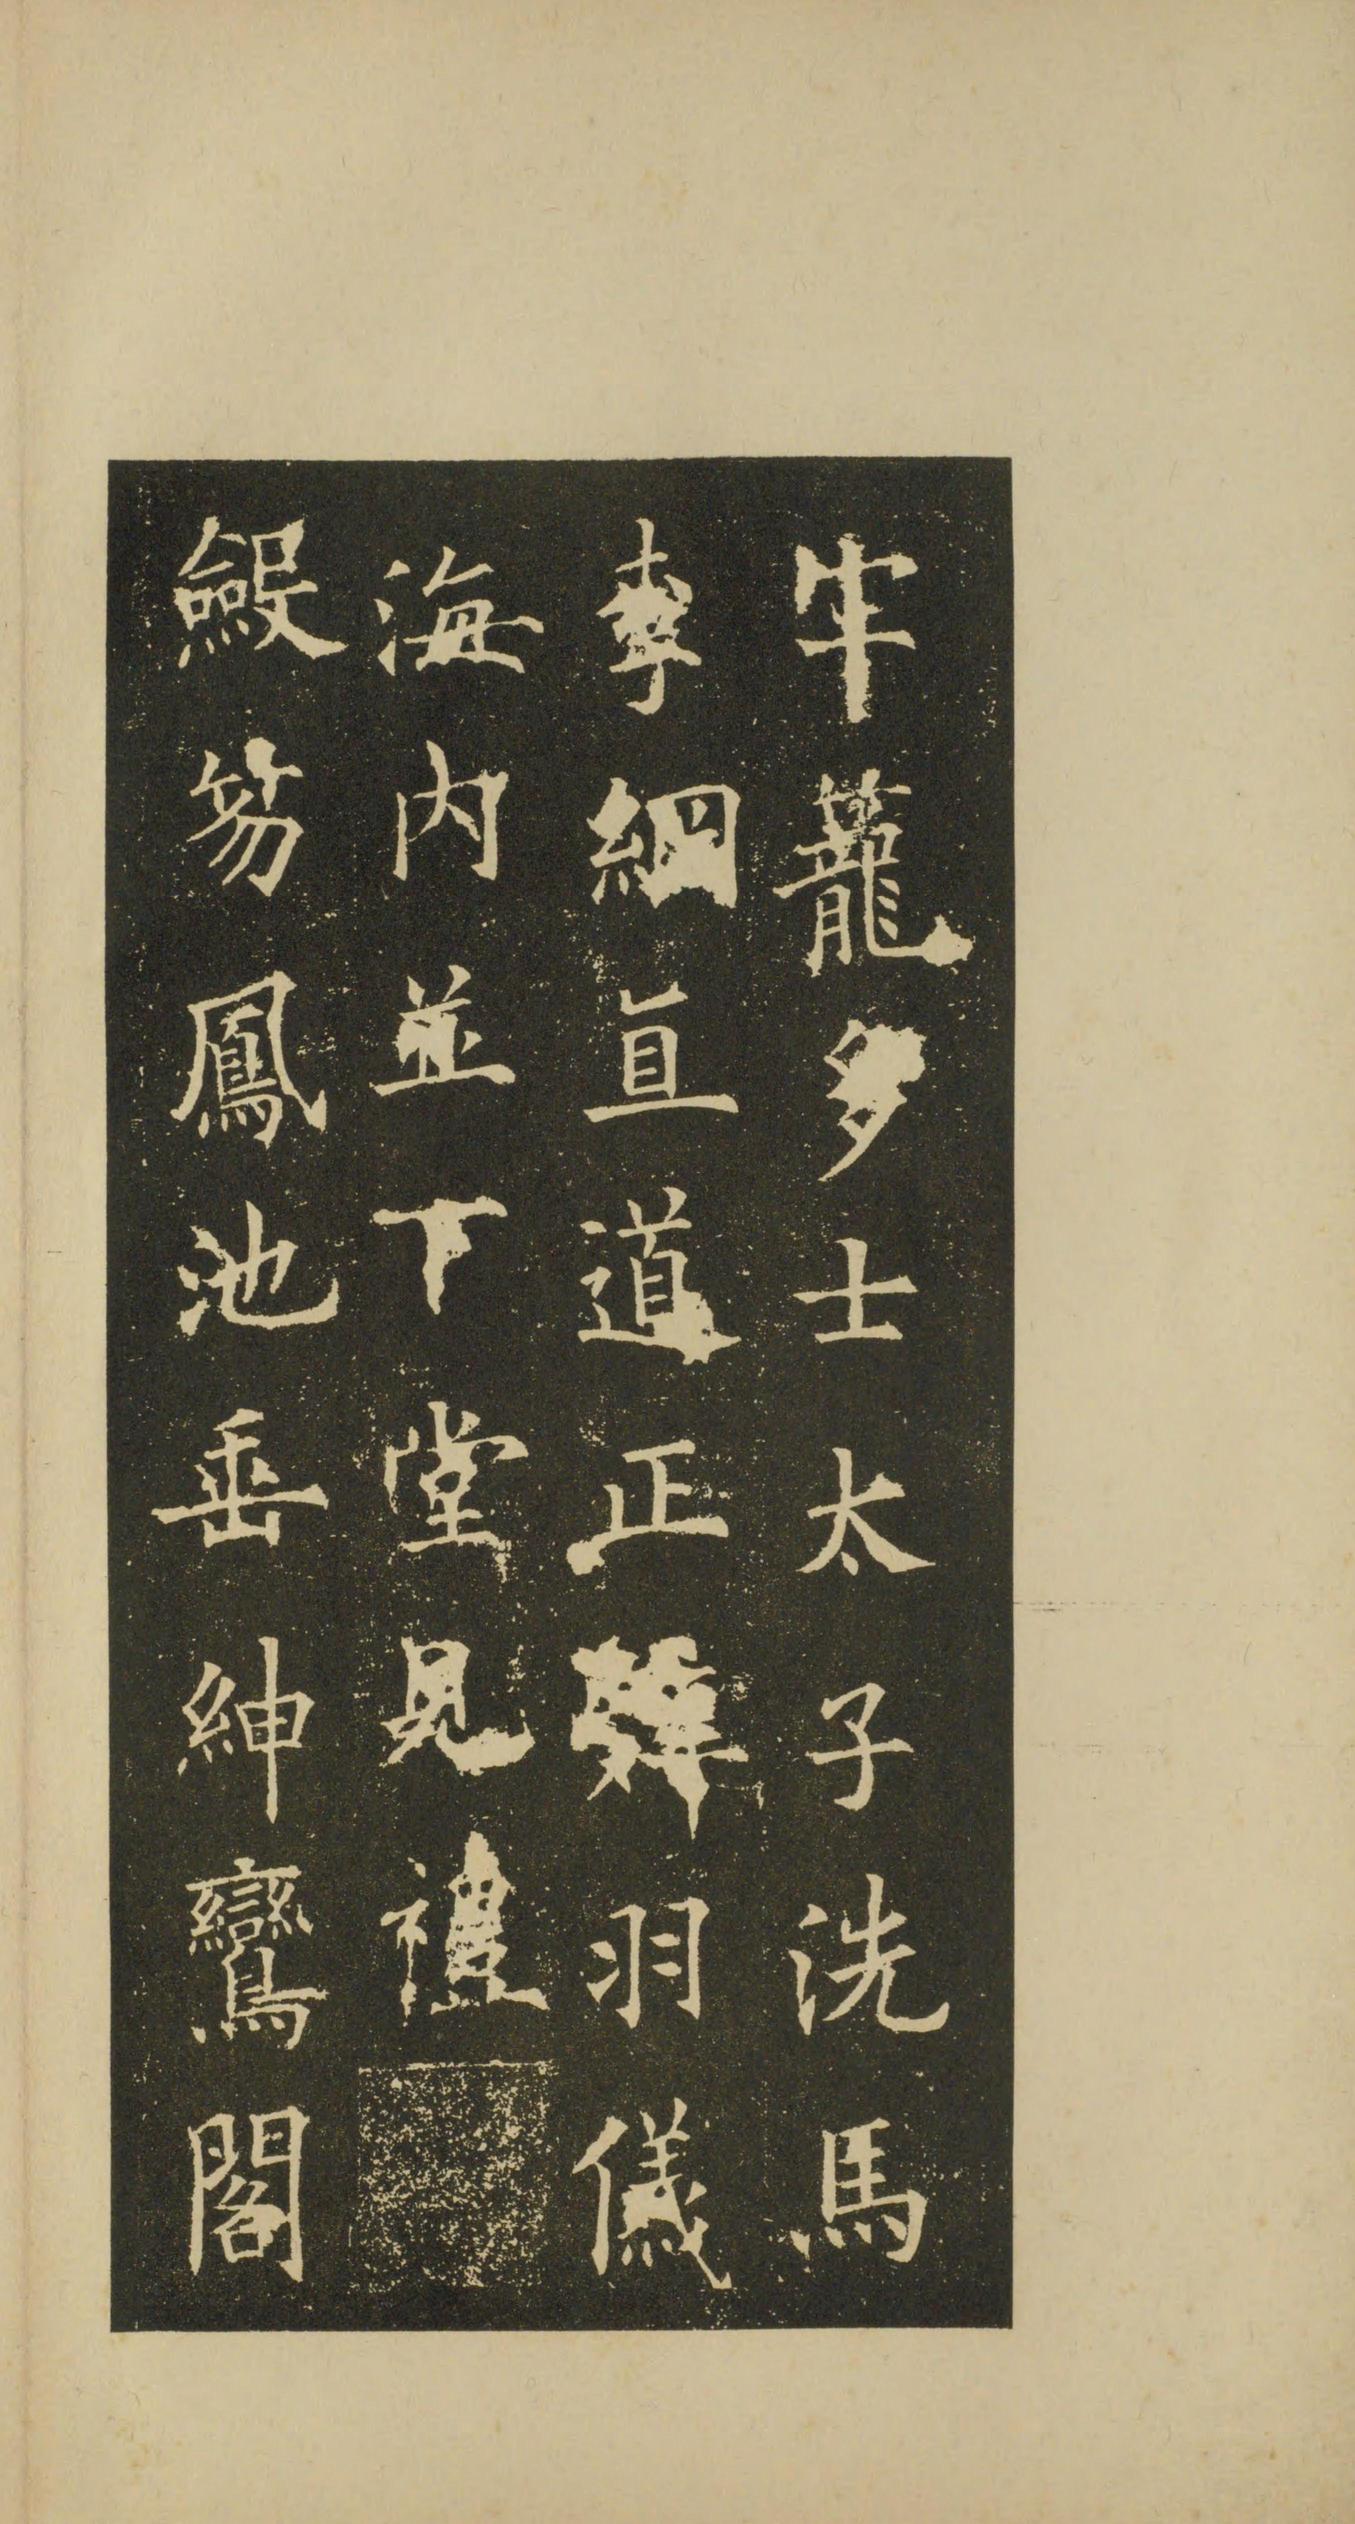 牢籠多士太子洗馬
李綱直道正辭羽儀
海內並下堂見禮
斂笏鳳池垂紳鸞閣